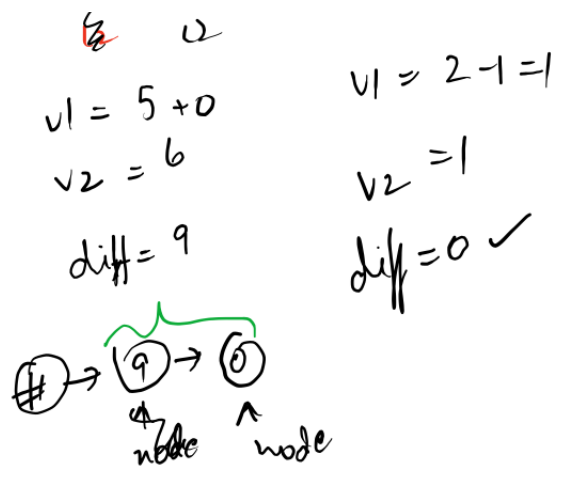 v1 = 5 + 0
v2 = 6
diff = 9
v1 = 2 - 1 = 1
v2 = 1
diff = 0 ✓
# → 9 → 0
node
node